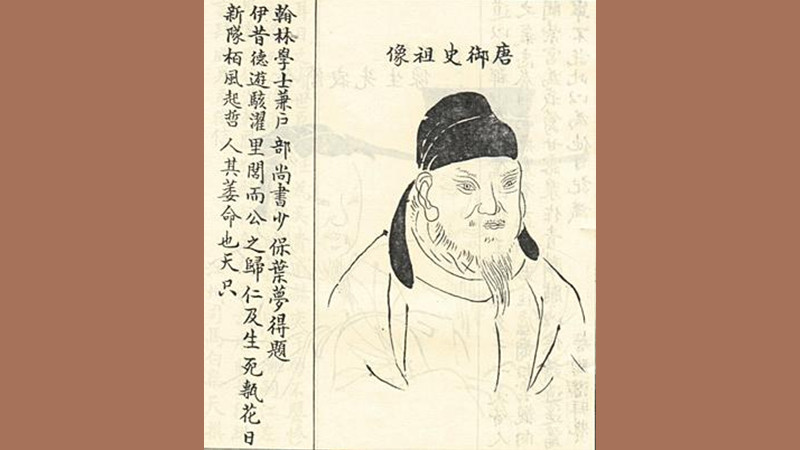 唐御史祖像
翰林學士兼戶部尚書少保葉夢得題
伊昔德遊駭濯里閭而公之歸仁及生死孰花日
新隊栢風起哲人其萎命也天只